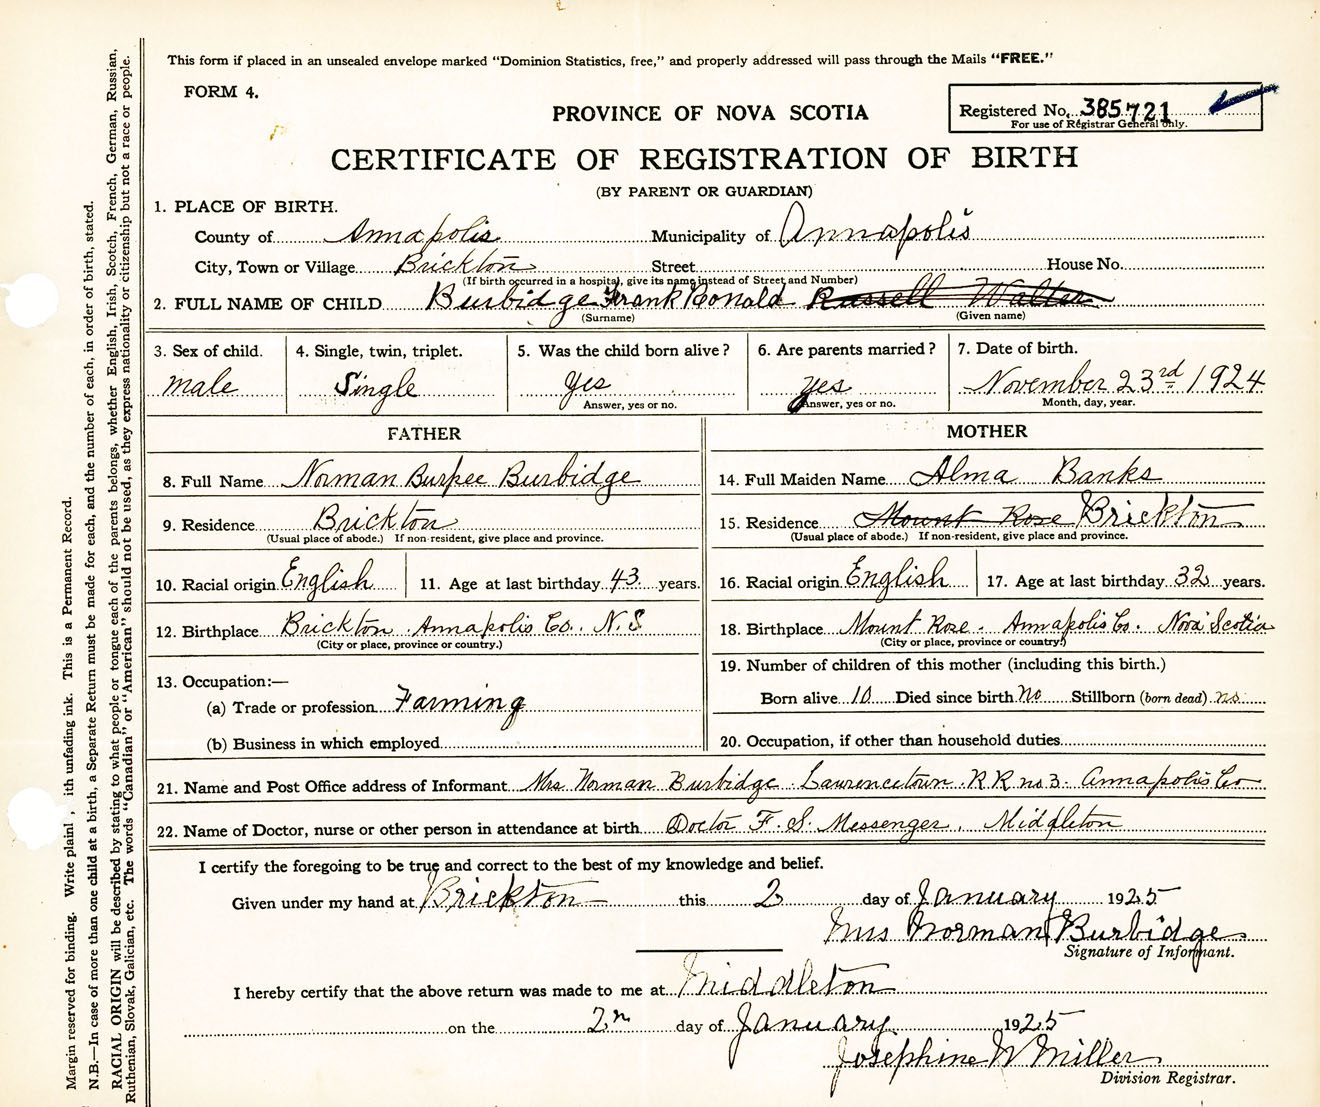 This form if placed in an unsealed envelope marked "Dominion Statistics, free," and properly addressed will pass through the Mails "FREE."
FORM 4.
PROVINCE OF NOVA SCOTIA
Registered No. 385721
For use of Registrar General only.
CERTIFICATE OF REGISTRATION OF BIRTH
(BY PARENT OR GUARDIAN)
1. PLACE OF BIRTH.
County of Annapolis Municipality of Annapolis
City, Town or Village Brickton Street House No.
(If birth occurred in a hospital, give its name instead of Street and Number)
2. FULL NAME OF CHILD Burbidge Frank Ronald Russell Walter
(Surname) (Given name)
3. Sex of child. 4. Single, twin, triplet. 5. Was the child born alive? 6. Are parents married? 7. Date of birth.
male Single yes yes November 23rd 1924
Answer, yes or no. Answer, yes or no. Month, day, year.
FATHER MOTHER
8. Full Name Norman Burpee Burbidge 14. Full Maiden Name Alma Banks
9. Residence Brickton 15. Residence Mount Rose Brickton
(Usual place of abode.) If non-resident, give place and province. (Usual place of abode.) If non-resident, give place and province.
10. Racial origin English 11. Age at last birthday 43 years. 16. Racial origin English 17. Age at last birthday 32 years.
12. Birthplace Brickton Annapolis Co. N.S 18. Birthplace Mount Rose. Annapolis Co. Nova Scotia
(City or place, province or country.) (City or place, province or country.)
19. Number of children of this mother (including this birth.)
13. Occupation:—
(a) Trade or profession Farming Born alive 10 Died since birth no Stillborn (born dead) no
(b) Business in which employed 20. Occupation, if other than household duties
21. Name and Post Office address of Informant Mrs Norman Burbidge. Laurencetown. R R no 3. Annapolis Co
22. Name of Doctor, nurse or other person in attendance at birth Doctor F. S. Messenger. Middleton
I certify the foregoing to be true and correct to the best of my knowledge and belief.
Given under my hand at Brickton this 2 day of January 1925
Mrs Norman Burbidge
Signature of Informant.
I hereby certify that the above return was made to me at Middleton
on the 2n day of January 1925
Josephine W Miller
Division Registrar.
Margin reserved for binding. Write plainl , ith unfading ink. This is a Permanent Record.
N.B.—In case of more than one child at a birth, a Separate Return must be made for each, and the number of each, in order of birth, stated.
RACIAL ORIGIN will be described by stating to what people or tongue each of the parents belongs, whether English, Irish, Scotch, French, German, Russian,
Ruthenian, Slovak, Galician, etc. The words "Canadian" or "American" should not be used, as they express nationality or citizenship but not a race or people.